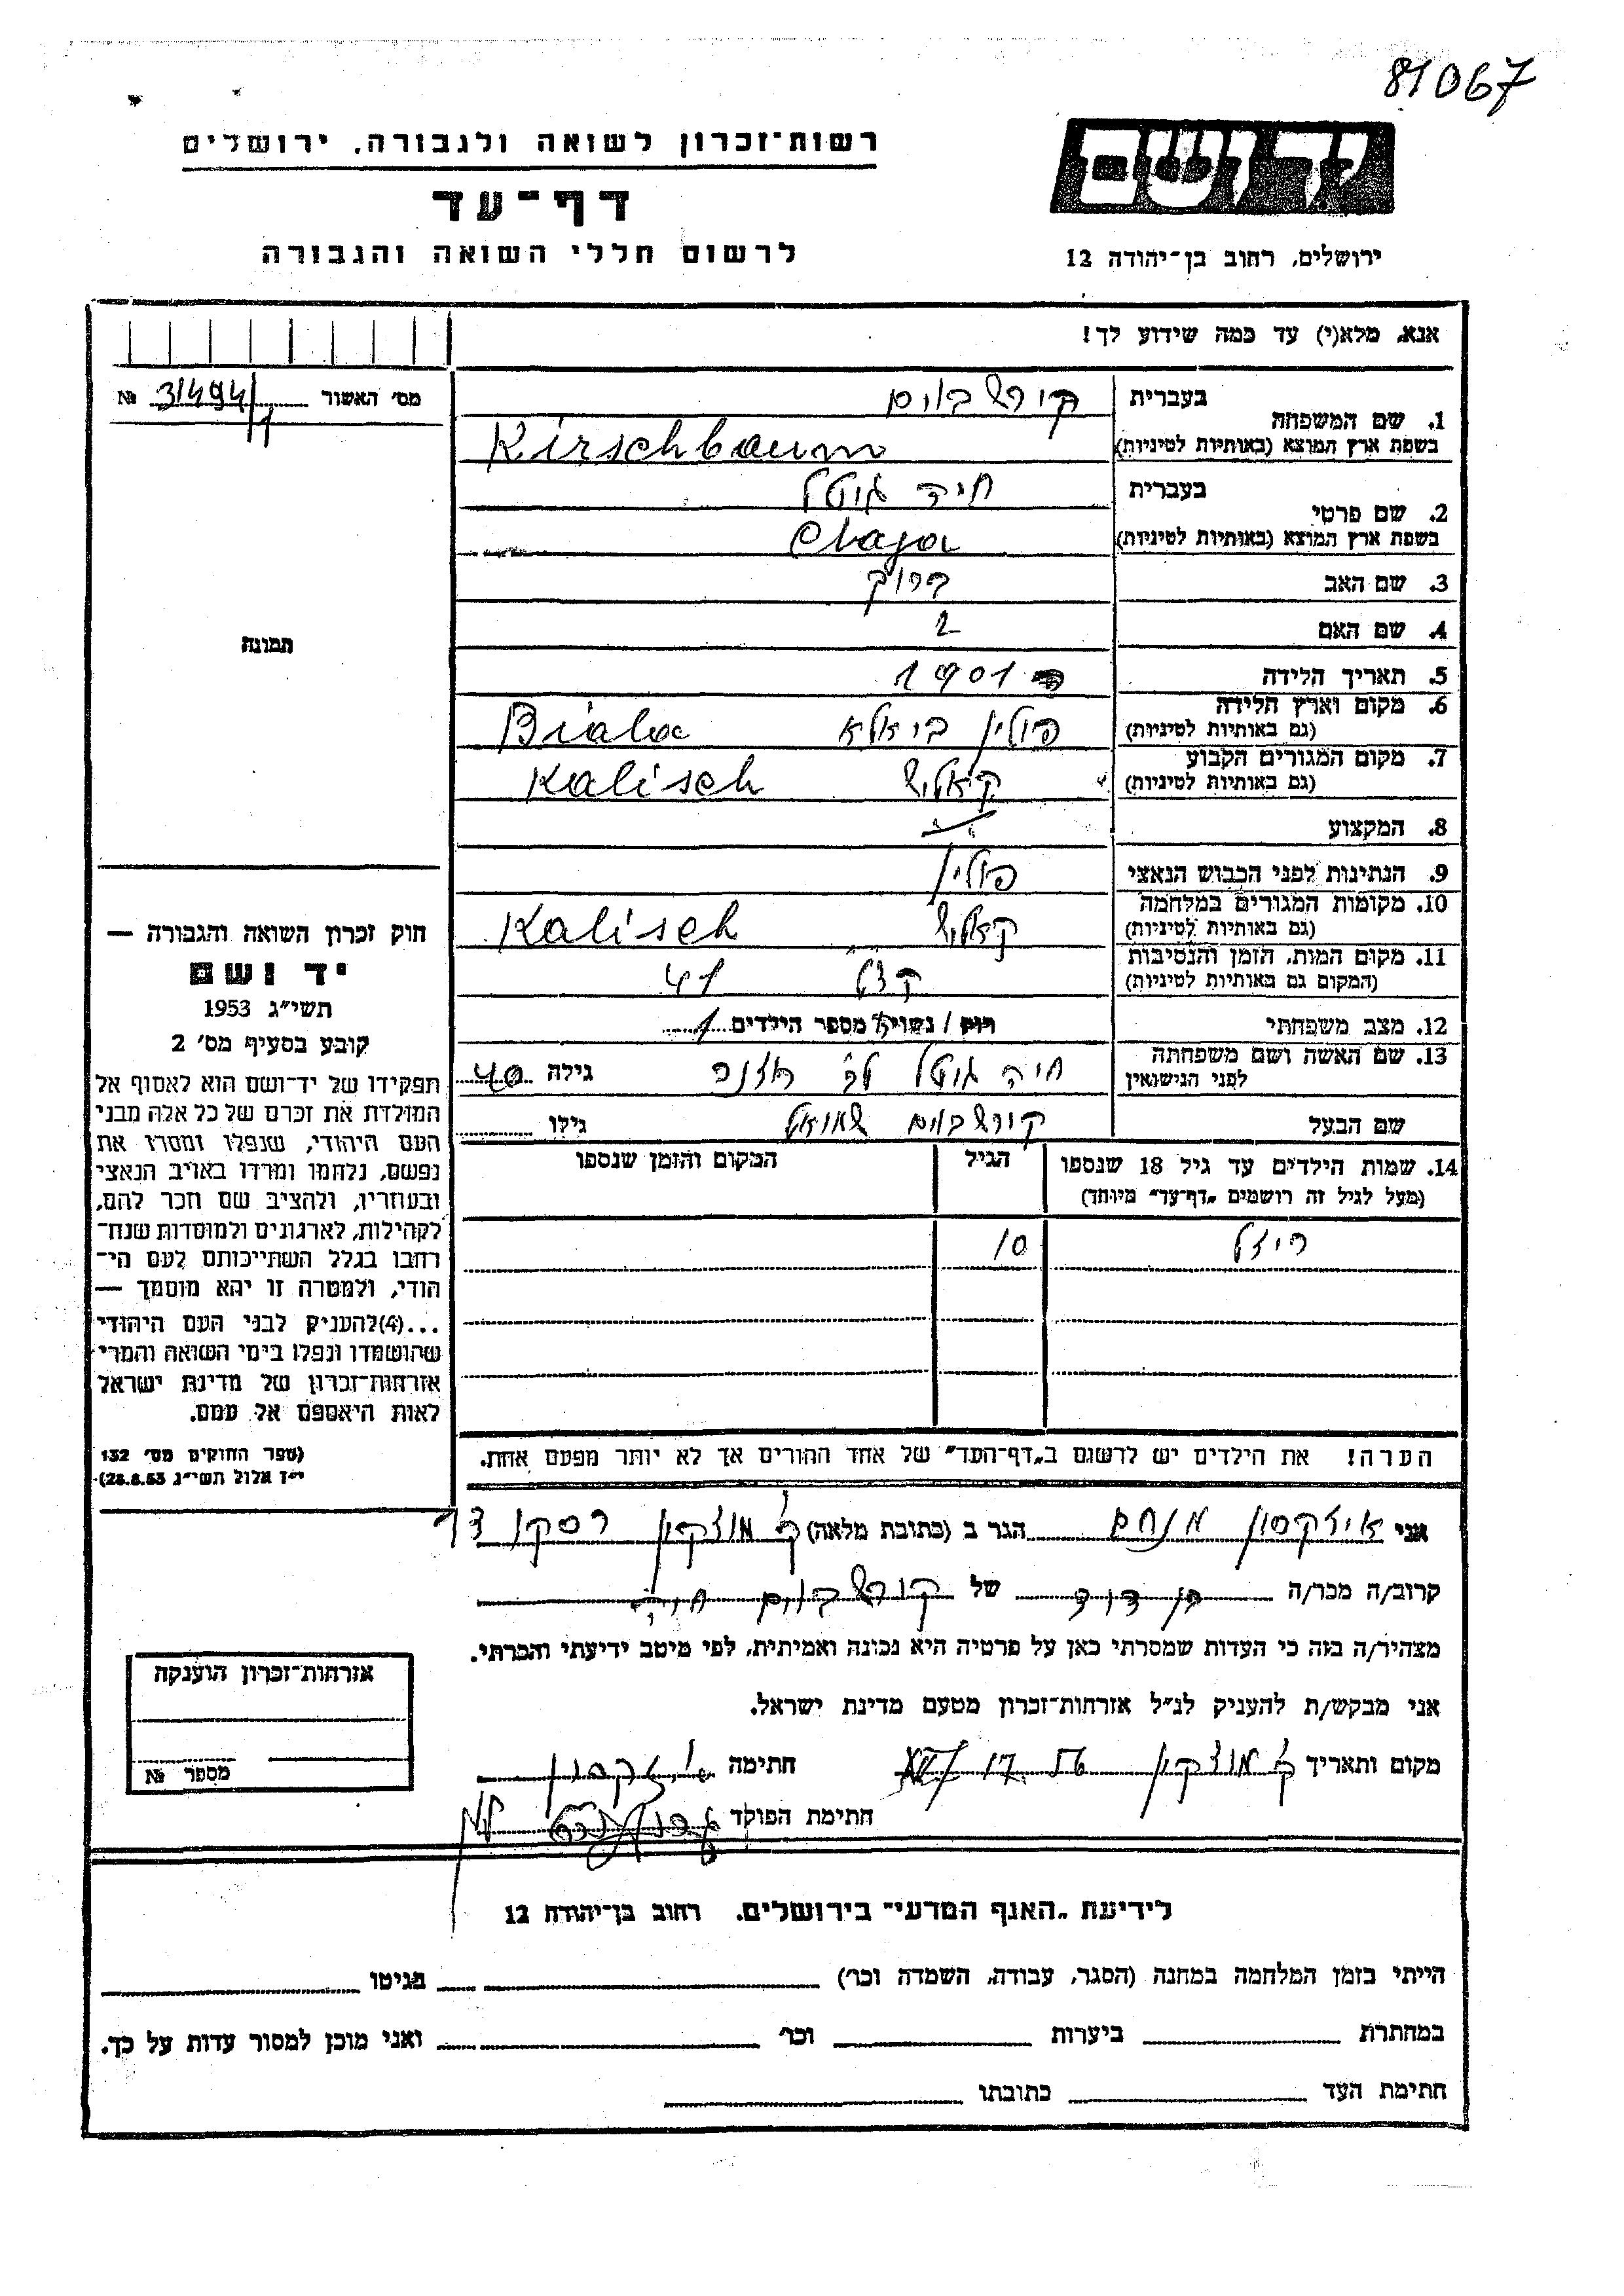 81067
יד ושם
רשות-זכרון לשואה ולגבורה, ירושלים
דף-עד
לרשום חללי השואה והגבורה
ירושלים, רחוב בן-יהודה 12
אנא, מלא(י) עד כמה שידוע לך!
מס׳ האשור 31494/1 №
1. שם המשפחה
בעברית קירשבוים
בשפת ארץ המוצא (באותיות לטיניות) Kirschbaum
2. שם פרטי
בעברית חיה גיטל
בשפת ארץ המוצא (באותיות לטיניות) Chaja
3. שם האב ברוך
4. שם האם
5. תאריך הלידה 1901
6. מקום וארץ הלידה פולין ביאלא Biala
(גם באותיות לטיניות)
7. מקום המגורים הקבוע קאליש Kalisch
(גם באותיות לטיניות)
8. המקצוע
9. הנתינות לפני הכבוש הנאצי פולין
10. מקומות המגורים במלחמה קאליש Kalisch
(גם באותיות לטיניות)
11. מקום המות, הזמן והנסיבות 41
(המקום גם באותיות לטיניות)
12. מצב משפחתי רוק / נשוי א מספר הילדים 1
13. שם האשה ושם משפחתה חיה גיטל גילה 40
לפני הנישואין
שם הבעל קירשבוים שמואל גילו
14. שמות הילדים עד גיל 18 שנספו הגיל המקום והזמן שנספו
(מעל לגיל זה רושמים „דף-עד״ מיוחד)
רייזל 10
הערה! את הילדים יש לרשום ב„דף-העד״ של אחד ההורים אך לא יותר מפעם אחת.
תמונה
חוק זכרון השואה והגבורה —
יד ושם
תשי״ג 1953
קובע בסעיף מס׳ 2
תפקידו של יד-ושם הוא לאסוף אל
המולדת את זכרם של כל אלה מבני
העם היהודי, שנפלו ומסרו את
נפשם, נלחמו ומרדו באויב הנאצי
ובעוזריו, ולהציב שם וזכר להם,
לקהילות, לארגונים ולמוסדות שנח-
רחבו בגלל השתייכותם לעם הי-
הודי, ולמטרה זו יהא מוסמך —
...(4)להעניק לבני העם היהודי
שהושמדו ונפלו בימי השואה והמרי
אזרחות-זכרון של מדינת ישראל
לאות היאספם אל עמם.
(ספר החוקים מס׳ 132
י״ז אלול תשי״ג 28.8.53)
אני איזקסון מנחם הגר ב (כתובת מלאה) ק׳ מוצקין רסקו
קרוב/ה מכר/ה בן דוד של קירשבוים חיה
מצהיר/ה בזה כי העדות שמסרתי כאן על פרטיה היא נכונה ואמיתית, לפי מיטב ידיעתי והכרתי.
אני מבקש/ת להעניק לנ״ל אזרחות-זכרון מטעם מדינת ישראל.
מקום ותאריך ק׳ מוצקין חתימה איזקסון
חתימת הפוקד
אזרחות-זכרון הוענקה
מספר №
לידיעת „האגף המדעי״ בירושלים, רחוב בן-יהודה 12
הייתי בזמן המלחמה במחנה (הסגר, עבודה, השמדה וכו׳) בגיטו
במחתרת ביערות וכו׳ ואני מוכן למסור עדות על כך.
חתימת העד כתובתו